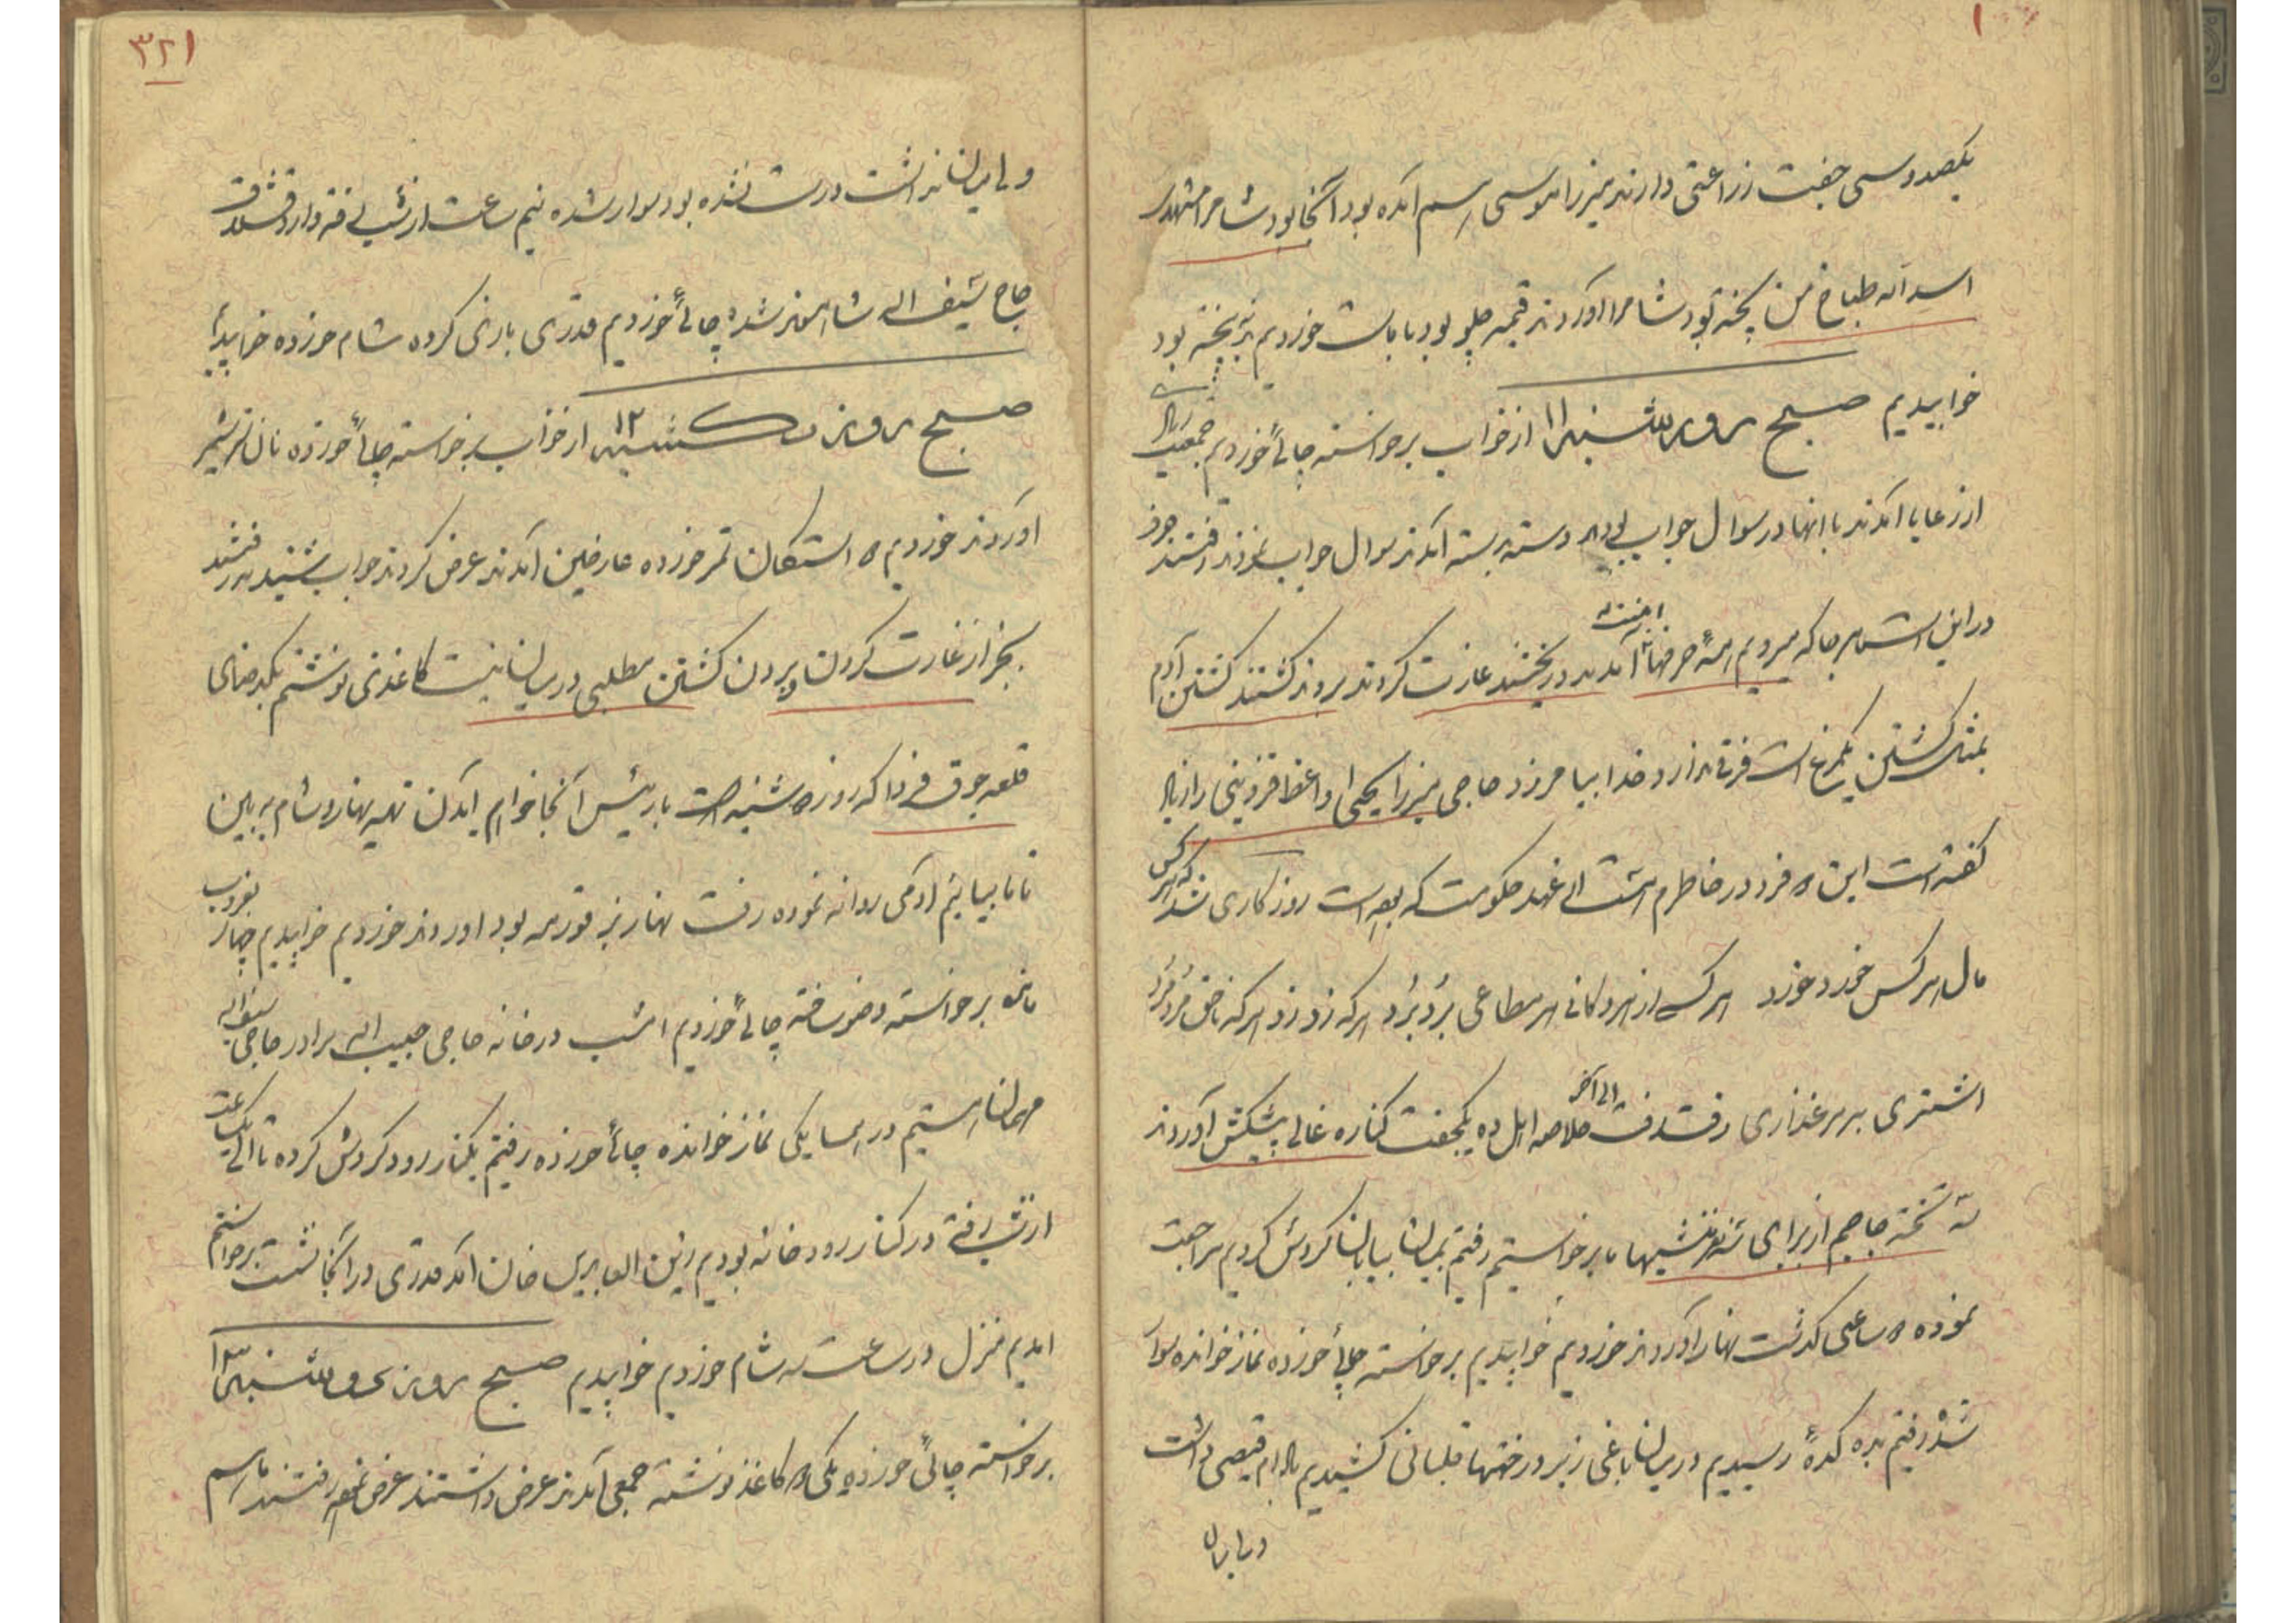 یکصد و سی جفت زراعتی دارند میرزا موسی هم آمده بود آنجا بود شام را مشهدی
اسدالله طباخ من پخته بود شام را آوردند قیمه چلو بود با ماست خوردیم بد نپخته بود
خوابیدیم صبح روز شنبه ۱۱ از خواب برخواسته چائی خوردیم جمعیت زیاد
از رعایا آمدند با آنها در سوال جواب بودم دسته بسته آمدند سوال جواب نمودند رفتند حرف
در این است هر جا که میرویم همه حرفها آمدند و ریختند غارت کردند بردند کشتند کشتن آدم
بمثل کشتن یکمرغ است فرقی ندارد خدا بیامرزد حاجی میرزا یحیی واعظ قزوینی را
گفته است این فرد در خاطرم است عهد حکومت که بوده است روزگاری شد که هر کس
مال هر کس خورد خورد هر کس از هر دکانی هر مطاعی برد برد هر که زد زد هر که ناحق مرد مرد
اشتری بر مرغذاری رفت رفت الی آخر خلاصه اهل ده یکجفت کناره غالی پیشکش آوردند
سه تخته جاجیم از برای ماها برخواستیم رفتیم بمیان بیابان گردش کردیم مراجعت
نموده ساعتی گذشت نهار آوردند خوردیم خوابیدیم برخواسته چائی خورده نماز خوانده سوار
شده رفتیم بده کدۀ رسیدیم در میان باغی زیر درختها قلیانی کشیدیم بادام قیصی داشت
ولی میان
۳۲۱
ولی میان نداشت درست نشده بود سوار شده نیم ساعت از شب رفته وارد قشلاق
حاج سیف الله شده چائی خوردیم قدری بازی کرده شام خورده خوابیدیم
صبح روز یکشنبه ۱۲ از خواب برخواسته چائی خورده نان شیر
آوردند خوردیم استکان خورده عارضین آمدند عرض کردند جواب شنیدند رفتند
بجز از غارت کردن و بردن کشتن مطلبی در میان نیست کاغذی نوشتم بکدخدای
قلعه جوق فردا که روز دوشنبه است با رئیس آنجا خواهم آمدن تهیه نهار و شام به بین
تا ما بیائیم آدمی روانه نموده رفت نهار بز قورمه بود آوردند خوردیم خوابیدیم چهار بغروب
مانده برخواسته وضو ساخته چائی خوردیم امشب در خانه حاجی حبیب الله برادر حاجی سیف الله
مهمان هستیم در همسایگی نماز خوانده چائی خورده رفتم بکنار رود گردش کرده تا الی یکساعت
از شب رفته در کنار رودخانه بودیم زین العابدین خان آمد قدری در آنجا نشست برخواستیم
آمدیم منزل در ساعت سه شام خوردیم خوابیدیم صبح روز دوشنبه ۱۳
برخواسته چائی خورده یکی کاغذ نوشته جمعی آمدند عرض داشتند عرض نموده رفتند ما هم